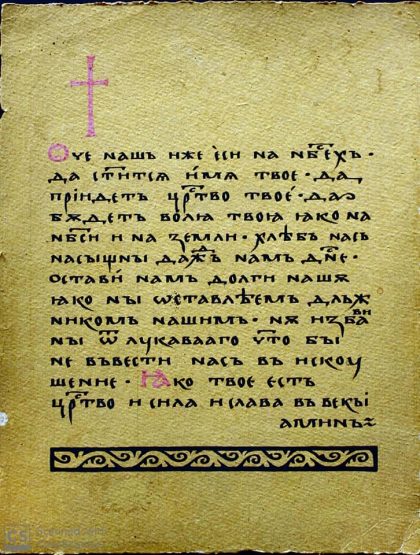 Ѻч҃е нашъ иже ѐси на нб҃сехъ ·
да ст҃итсѧ и́мѧ твое · да
прїидетъ цр҃ство твое · да
бѫдетъ волꙗ твоꙗ ꙗко на
нб҃си и на земли · хлѣбъ насъ
насыщны даждъ намъ дн҃е ·
остави намъ долги нашѧ
ꙗко ны ѡставлѣемъ длъж
никомъ нашимъ · нѧ изба
ви
ны ѿ лукавааго что бы
не въвести насъ въ искоу
шение · Ꙗко твое есть
цр҃ство и сила и слава въ векы
аминъ